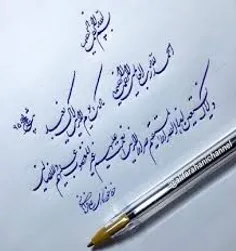 بسم الله الرحمن الرحیم
الحمد لله رب العالمین الرحمن الرحیم
مالک یوم الدین ایاک نعبد
و ایاک نستعین اهدنا الصراط المستقیم صراط الذین انعمت علیهم غیر المغضوب علیهم و لا الضالین